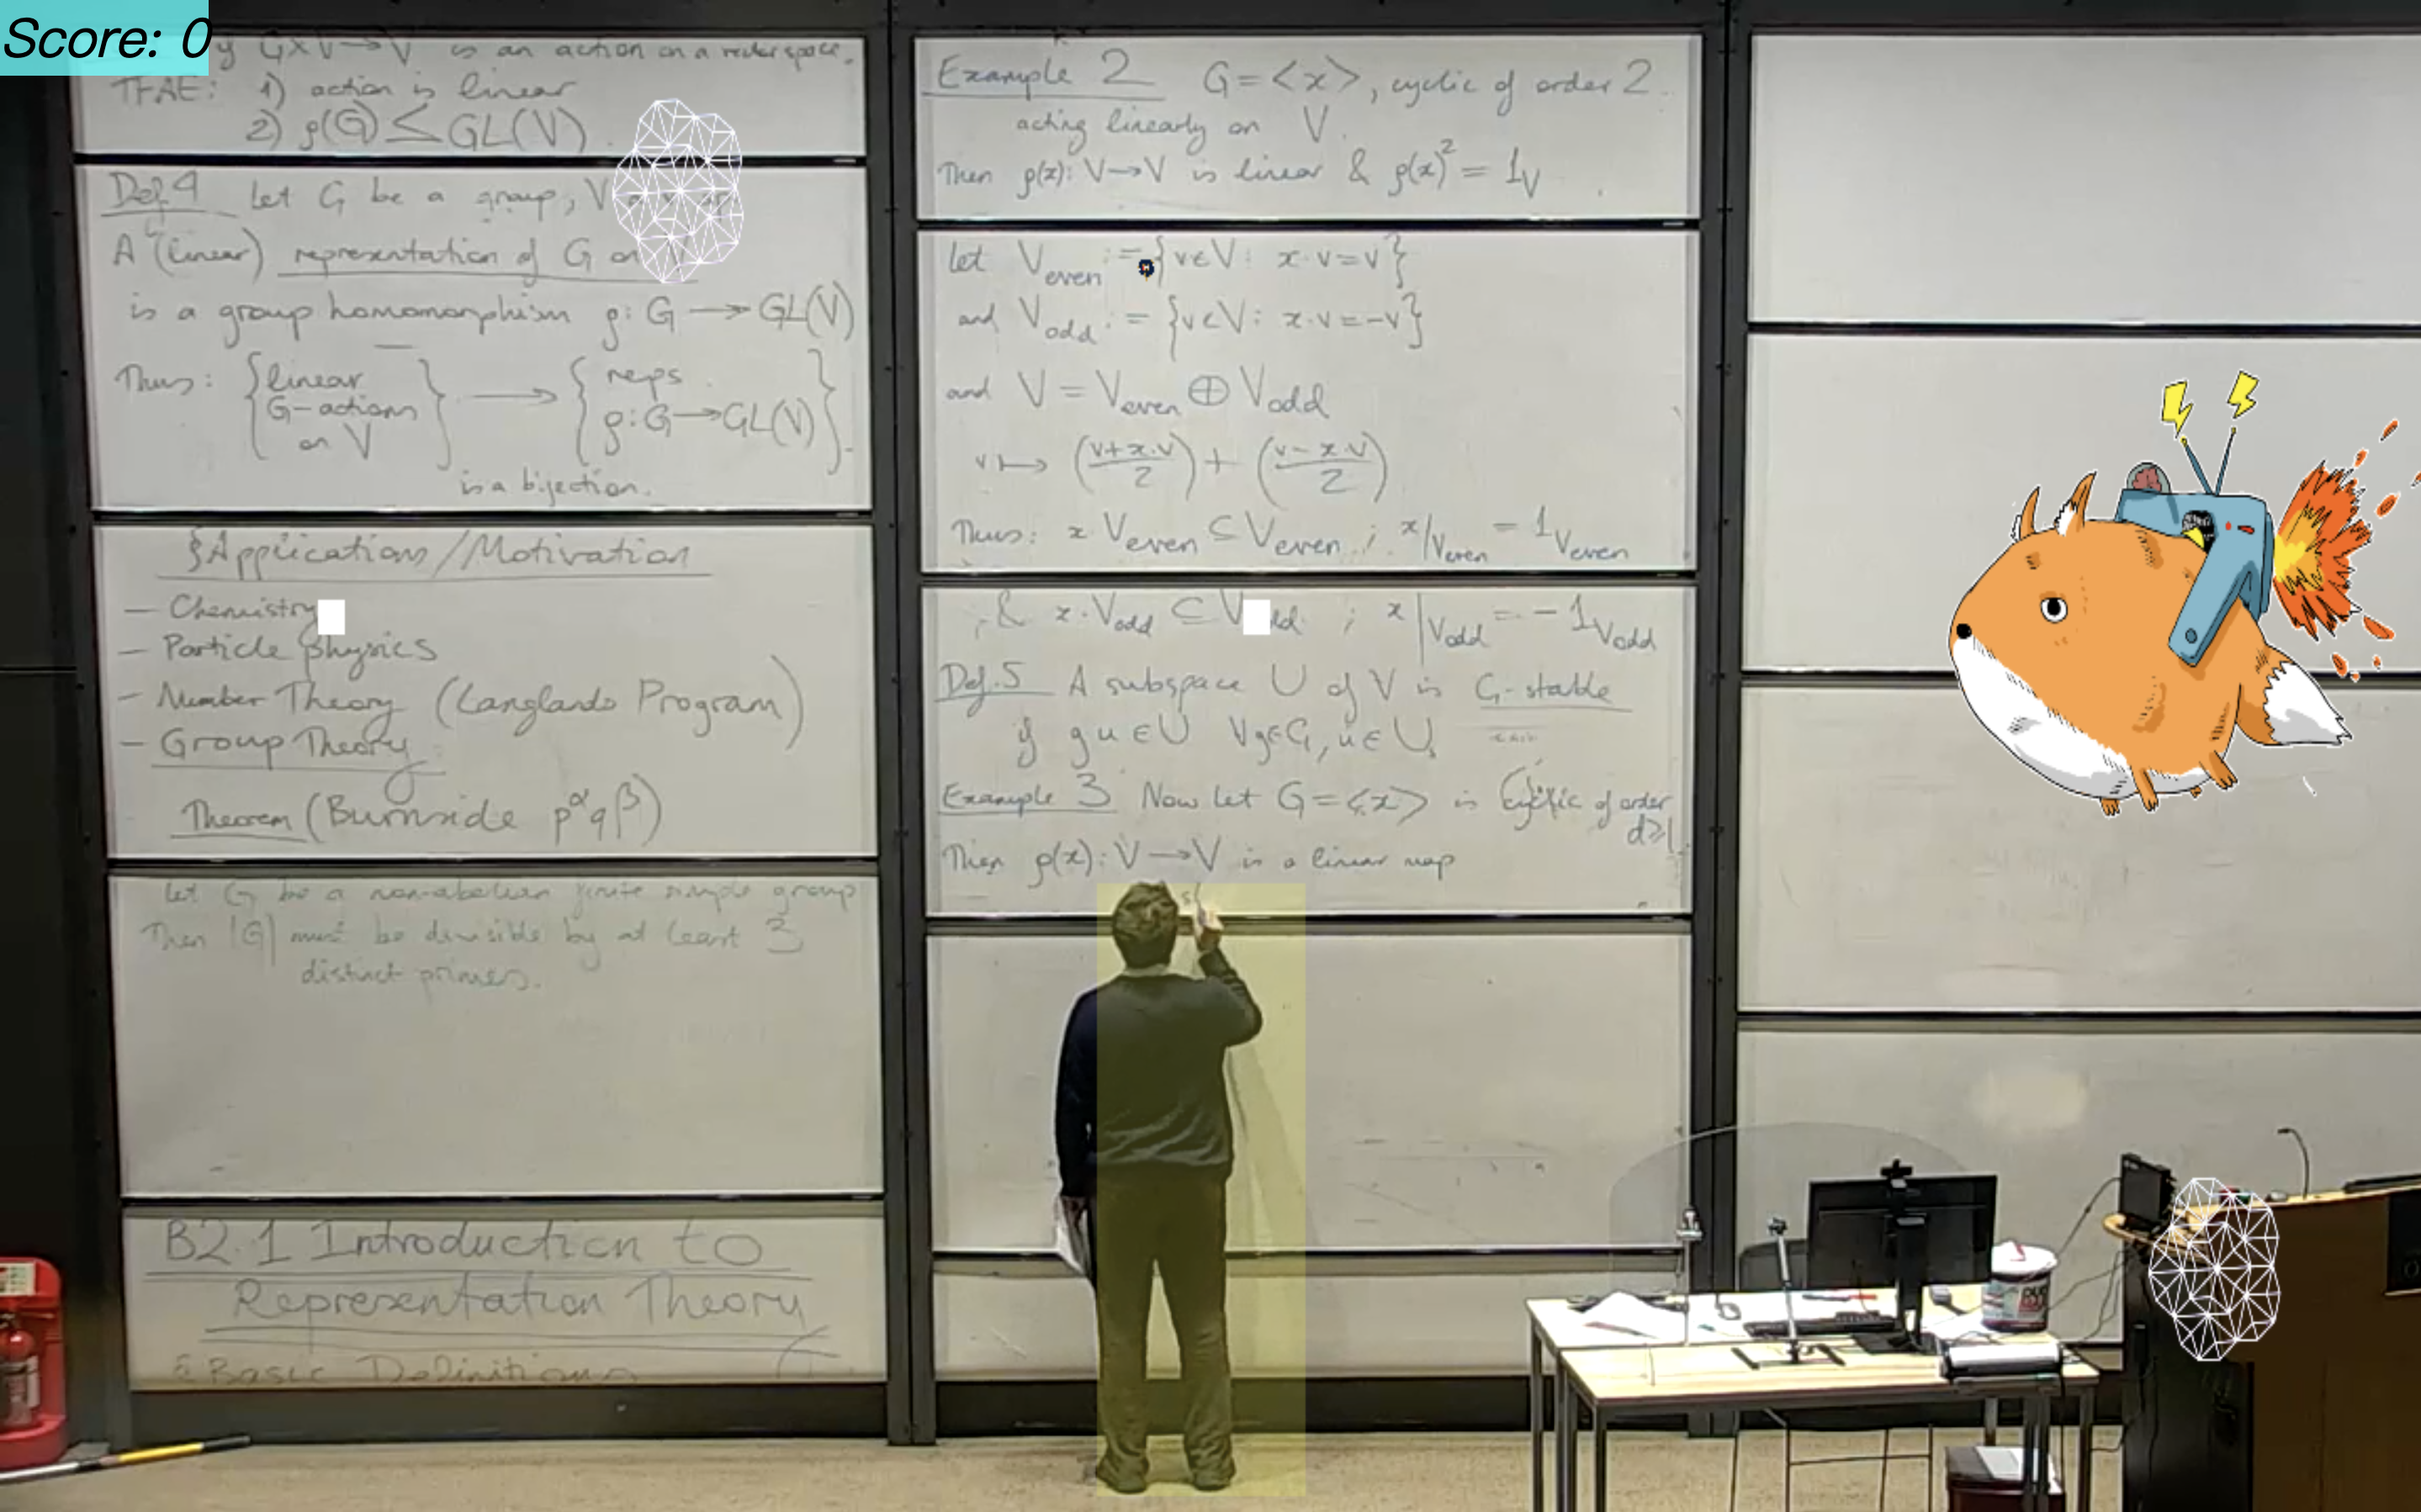 Score: 0
if G×V→V is an action on a vector space.
TFAE: 1) action is linear
2) ρ(G) ≤ GL(V).
Def.4 Let G be a group, V
A (linear) representation of G on
is a group homomorphism ρ: G → GL(V)
Thus: {linear G-actions on V} → {reps ρ: G → GL(V)}.
is a bijection.
§Applications/Motivation
— Chemistry
— Particle physics
— Number Theory (Langlands Program)
— Group Theory:
Theorem (Burnside p^α q^β)
Let G be a non-abelian finite simple group
Then |G| must be divisible by at least 3
distinct primes.
B2.1 Introduction to
Representation Theory
§ Basic Definitions
Example 2 G = <x>, cyclic of order 2
acting linearly on V.
Then ρ(x): V→V is linear & ρ(x)² = 1_V
Let V_even := {v∈V: x·v=v}
and V_odd := {v∈V: x·v=-v}
and V = V_even ⊕ V_odd
v ↦ ((v+x·v)/2) + ((v-x·v)/2)
Thus: x·V_even ⊆ V_even ; x|_V_even = 1_V_even
& x·V_odd ⊂ V_odd ; x|_V_odd = -1_V_odd
Def.5 A subspace U of V is G-stable
if gu ∈ U ∀g∈G, u∈U.
Example 3 Now let G = <x> is cyclic of order
d≥1.
Then ρ(x): V→V is a linear map